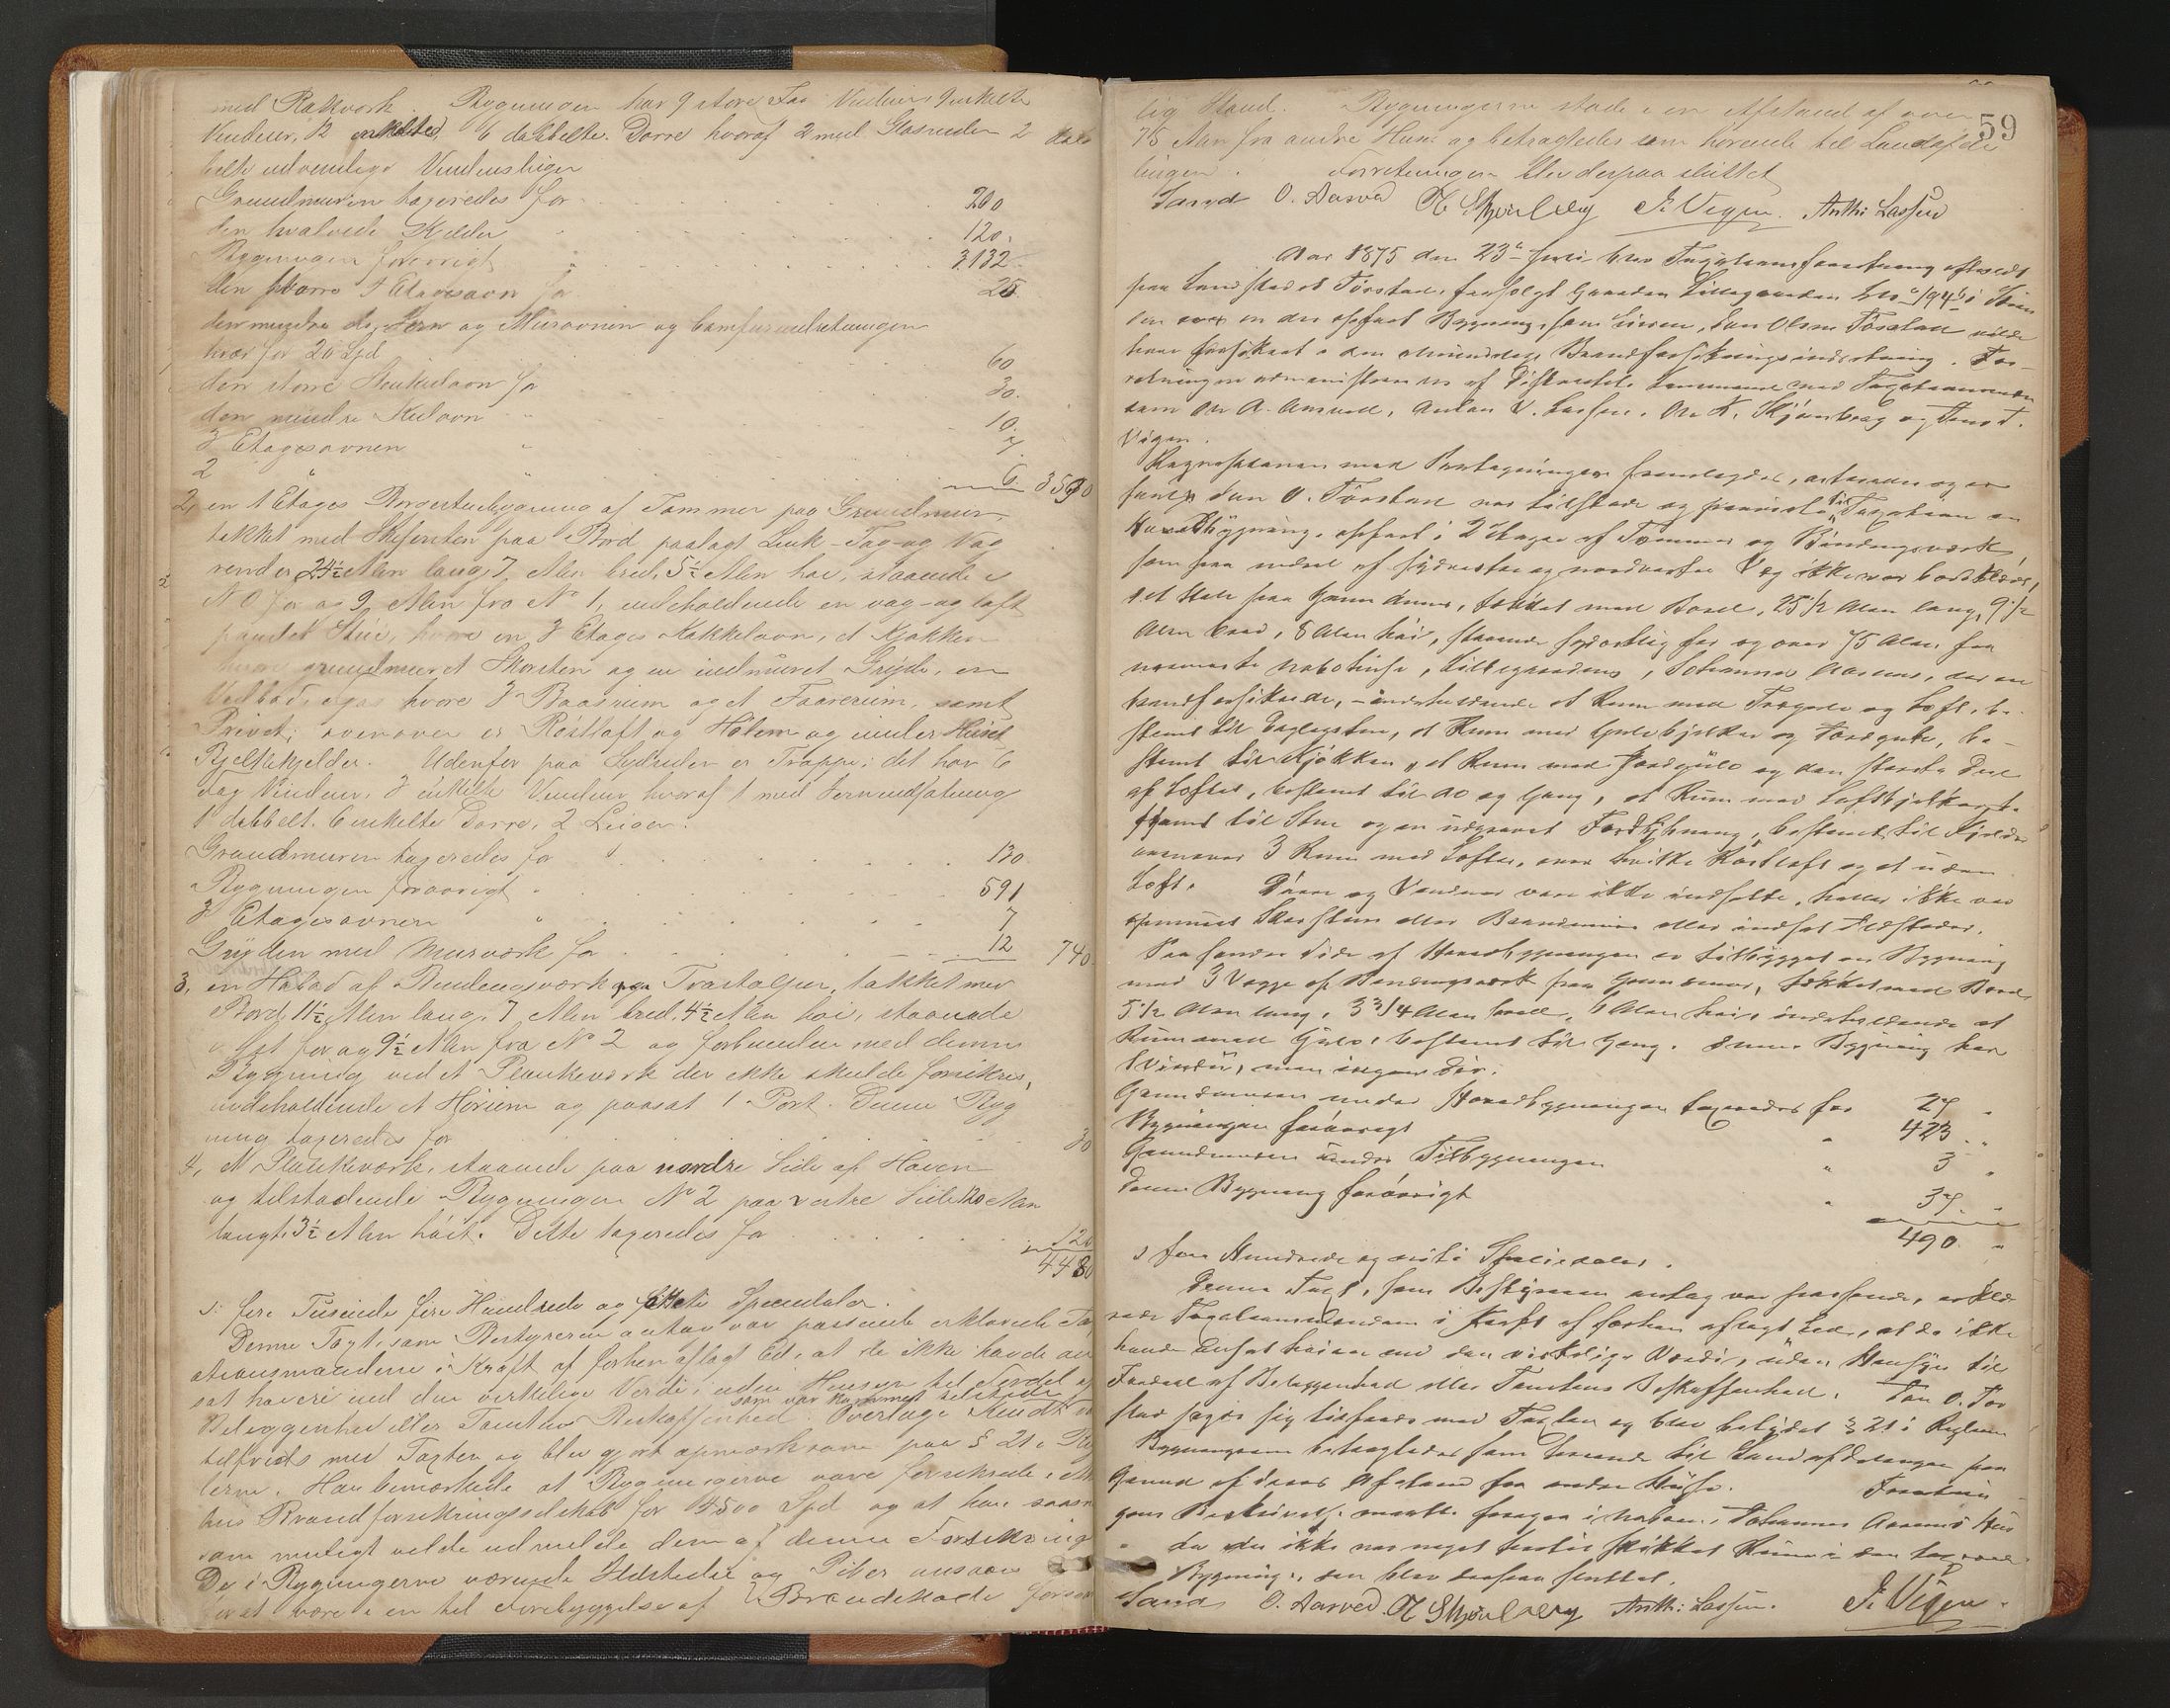 med Rækvork. Bygningen har 9 store Fag Vinduer, 9 enkelte
Vinduer, 12 enkelte, 6 dobbelte Dørre hvoraf 2 med Glasruder 2 dob
belte udvendige Vinduesluger
Grundmuren taxeredes for 200
den hvælvede Kjelder 120.
Bygningen forøvrigt 3132
den større 3 Etagesovn for 25
den mindre do, Jern og Murovnen og Comfurindretningen
hver for 20 Spd 60
den større Stentulovn for 30.
den mindre Kulovn 10.
3 Etagesovnen 7
2 " 6. 3590
2, en 1 Etages Borgestuebygning af Tømmer paa Grundmur,
tækket med Skifersten paa Bord paalagt Zink-Tag- og Vag
render 24½ Alen lang, 7 Alen bred, 5½ Alen høi, staaende i
N O for og 9 Alen fra N° 1, indeholdende en væg- og loft
pandet Stue, hvori en 3 Etages Kakkelovn, et Kjøkken
hvori grundmuret Skorsten og en indmuret Gryde, en
Vedbod, hvori 3 Baasrum og et Faarerum, samt
Privet; ovenover er Røstloft og Hølem og under Huset
Bjelkekjelder. Udenfor paa Sydsiden er Trappe; det har 6
Fag Vinduer, 3 enkelte Vinduer hvoraf 1 med Jernindfatning
1 dobbelt, 6 enkelte Dørre, 2 Luger.
Grundmuren taxeredes for 130.
Bygningen forøvrigt 591
3 Etagesovnen " 7
Gryden med Murværk for 12 740.
3, en Høbod af Bindingsværk paa Træstolper, tækket med
Bord, 11½ Alen lang, 7 Alen bred, 4½ Alen høi, staaende
i Øst for og 9½ Alen fra N° 2 og forbunden med denne
Bygning ved et Plankeværk der ikke skulde forsikres,
indeholdende et Hørum og paasat 1 Port. Denne Byg
ning taxeredes for 30
4, et Plankeværk, staaende paa nordre Side af Haven
og tilstødende Bygningen N° 2 paa vestre Side 120 Alen
langt, 3½ Alen høit. Dette taxeredes for 120
4480
s: fire Tusinde fire Hundrede og otteti Speciedaler.
Denne Taxt, som Bestyreren antog var passende erklærede Tax
ationsmændene i Kraft af forhen aflagt Ed, at de ikke havde an
sat høiere end den virkelige Verdi, uden Hensyn til Fordel af
som var kommet tilstede
Beliggenhed eller Tomtens Beskaffenhed. Overlæge Kindt var
tilfreds med Taxten og blev gjort opmærksom paa § 21 i Reg
lerne. Han bemærkede at Bygningerne vare forsikrede i
Brandforsikringsselskab for 4500 Spd og at han saasn
som muligt vilde udmelde dem af denne Forsikring
De i Bygningerne værende Ildsteder og Piber ansaaes
for at være i en til Forebyggelse af Brandskade forsvar
59
lig Stand. Bygningerne stode i en Afstand af over
75 Alen fra andre Huse og betragtedes som hørende til Landafde
lingen. Forretningen blev derpaa sluttet
Sand O. Aarvd O K Skjønberg J. Vigen. Anth: Lassen
Aar 1875 den 23de Juli blev Taxationsforretning afholdt
paa Landstedet Tørstad, fraskilt Gaarden Lillegaarden Lbr No 194b i
over en der opført Bygning, som Eieren, Jan Olsen Tørstad vilde
have forsikret i den almindelige Brandforsikringsindretning. For-
retningen administreredes af Distriktets Lensmand med Taxationsmænd
som Ole A. Aarved, Anton V. Lassen, Ole K. Skjønberg og Jens T.
Vigen.
Reqvisitionen med Paategninger fremlagdes,
Jan O. Tørstad var tilstede og paaviste til Taxation en
Hovedbygning, opført i 2 Etager af Tømmer og Bindingsværk,
som paa endel af sydvestre og nordvestre Væg ikke var bordklædt,
det Hele paa Grundmur, tækket med Bord, 25 1/2 Alen lang, 9 1/2
Alen bred, 8 Alen høi, staaende sydostlig for og over 75 Alen fra
nærmeste Nabohuse, Lillegaardens, Johannes Aasens, der er
brandforsikrede, - indeholdende et Rum med Trægulv og Loft, be-
stemt til Daglegstue, et Rum med Gulvbjelker og Jordgulv, be-
stemt til Kjøkken, et Rum med Jordgulv og den største Deel
af Loftet, bestemt til do og Gang, et Rum med Loftbjelker be
stemt til Stue og en udgravet Fordybning, bestemt til Kjelder
ovenover 3 Rum med Lofter, over hvilke Røstloft og et uden
Loft. Døre og Vinduer vare ikke indsatte, heller ikke var
opmuret Skorsten eller Brandmure eller indsat Ildsteder.
Paa søndre Side af Hovedbygningen er tilbygget en Bygning
med 3 Vægge af Bindingsværk paa Grundmur, tækket med Bord
5 1/2 Alen lang, 3 3/4 Alen bred, 6 Alen høi, indeholdende et
Rum med Gulv, bestemt til Gang. Denne Bygning har
1 Vindu, men ingen Dør.
Grundmuren under Hovedbygningen taxeredes for 27 "
Bygningen forøvrigt " 423 "
Grundmuren under Tilbygningen " 3 "
Denne Bygning forøvrigt " 37. "
490 "
s fire Hundrede og niti Speciedaler.
Denne Taxt, som Bestyreren antog var passende, erklæ
rede Taxationsmændene i Kraft af forhen aflagt Eed, at de ikke
havde ansat høiere end den virkelige Værdi, uden Hensyn til
Fordel af Beliggenhed eller Tomtens Beskaffenhed. Jan O. Tør
stad sagde sig tilfreds med Taxten og blev betydet § 21 i Reglerne
Bygningerne betragtedes som hørende til Landafdelingen paa
Grund af deres Afstand fra andre Huse. Forretnin
gens Beskrivelse maatte foregaa i Naboen, Johannes Aasens Hus
da der ikke var noget hertil skikket Rum i den taxerede
Bygning, den blev derpaa sluttet.
Sand O. Aarved. O K Skjønberg Anth: Lassen. J. Vigen.